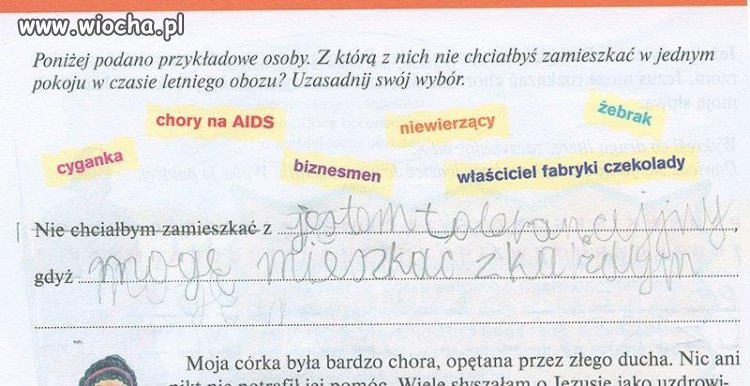 www.wiocha.pl
Poniżej podano przykładowe osoby. Z którą z nich nie chciałbyś zamieszkać w jednym
pokoju w czasie letniego obozu? Uzasadnij swój wybór.
chory na AIDS
niewierzący
żebrak
cyganka
biznesmen
właściciel fabryki czekolady
Nie chciałbym zamieszkać z jestem tolerancyjny,
gdyż mogę mieszkać z każdym
Moja córka była bardzo chora, opętana przez złego ducha. Nic ani
nikt nie potrafił jej pomóc. Wiele słyszałam o Jezusie jako uzdrowi-